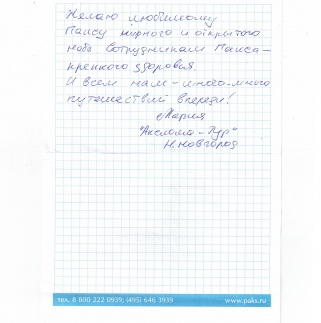 Желаю любимому
Паксу мирного и открытого
неба Сотрудникам Пакса-
крепкого здоровья.
И всем нам - много-много
путешествий впереди!
Мария
"Аксиома-Тур"
Н.Новгород
тел. 8 800 222 0939; (495) 646 3939
www.paks.ru